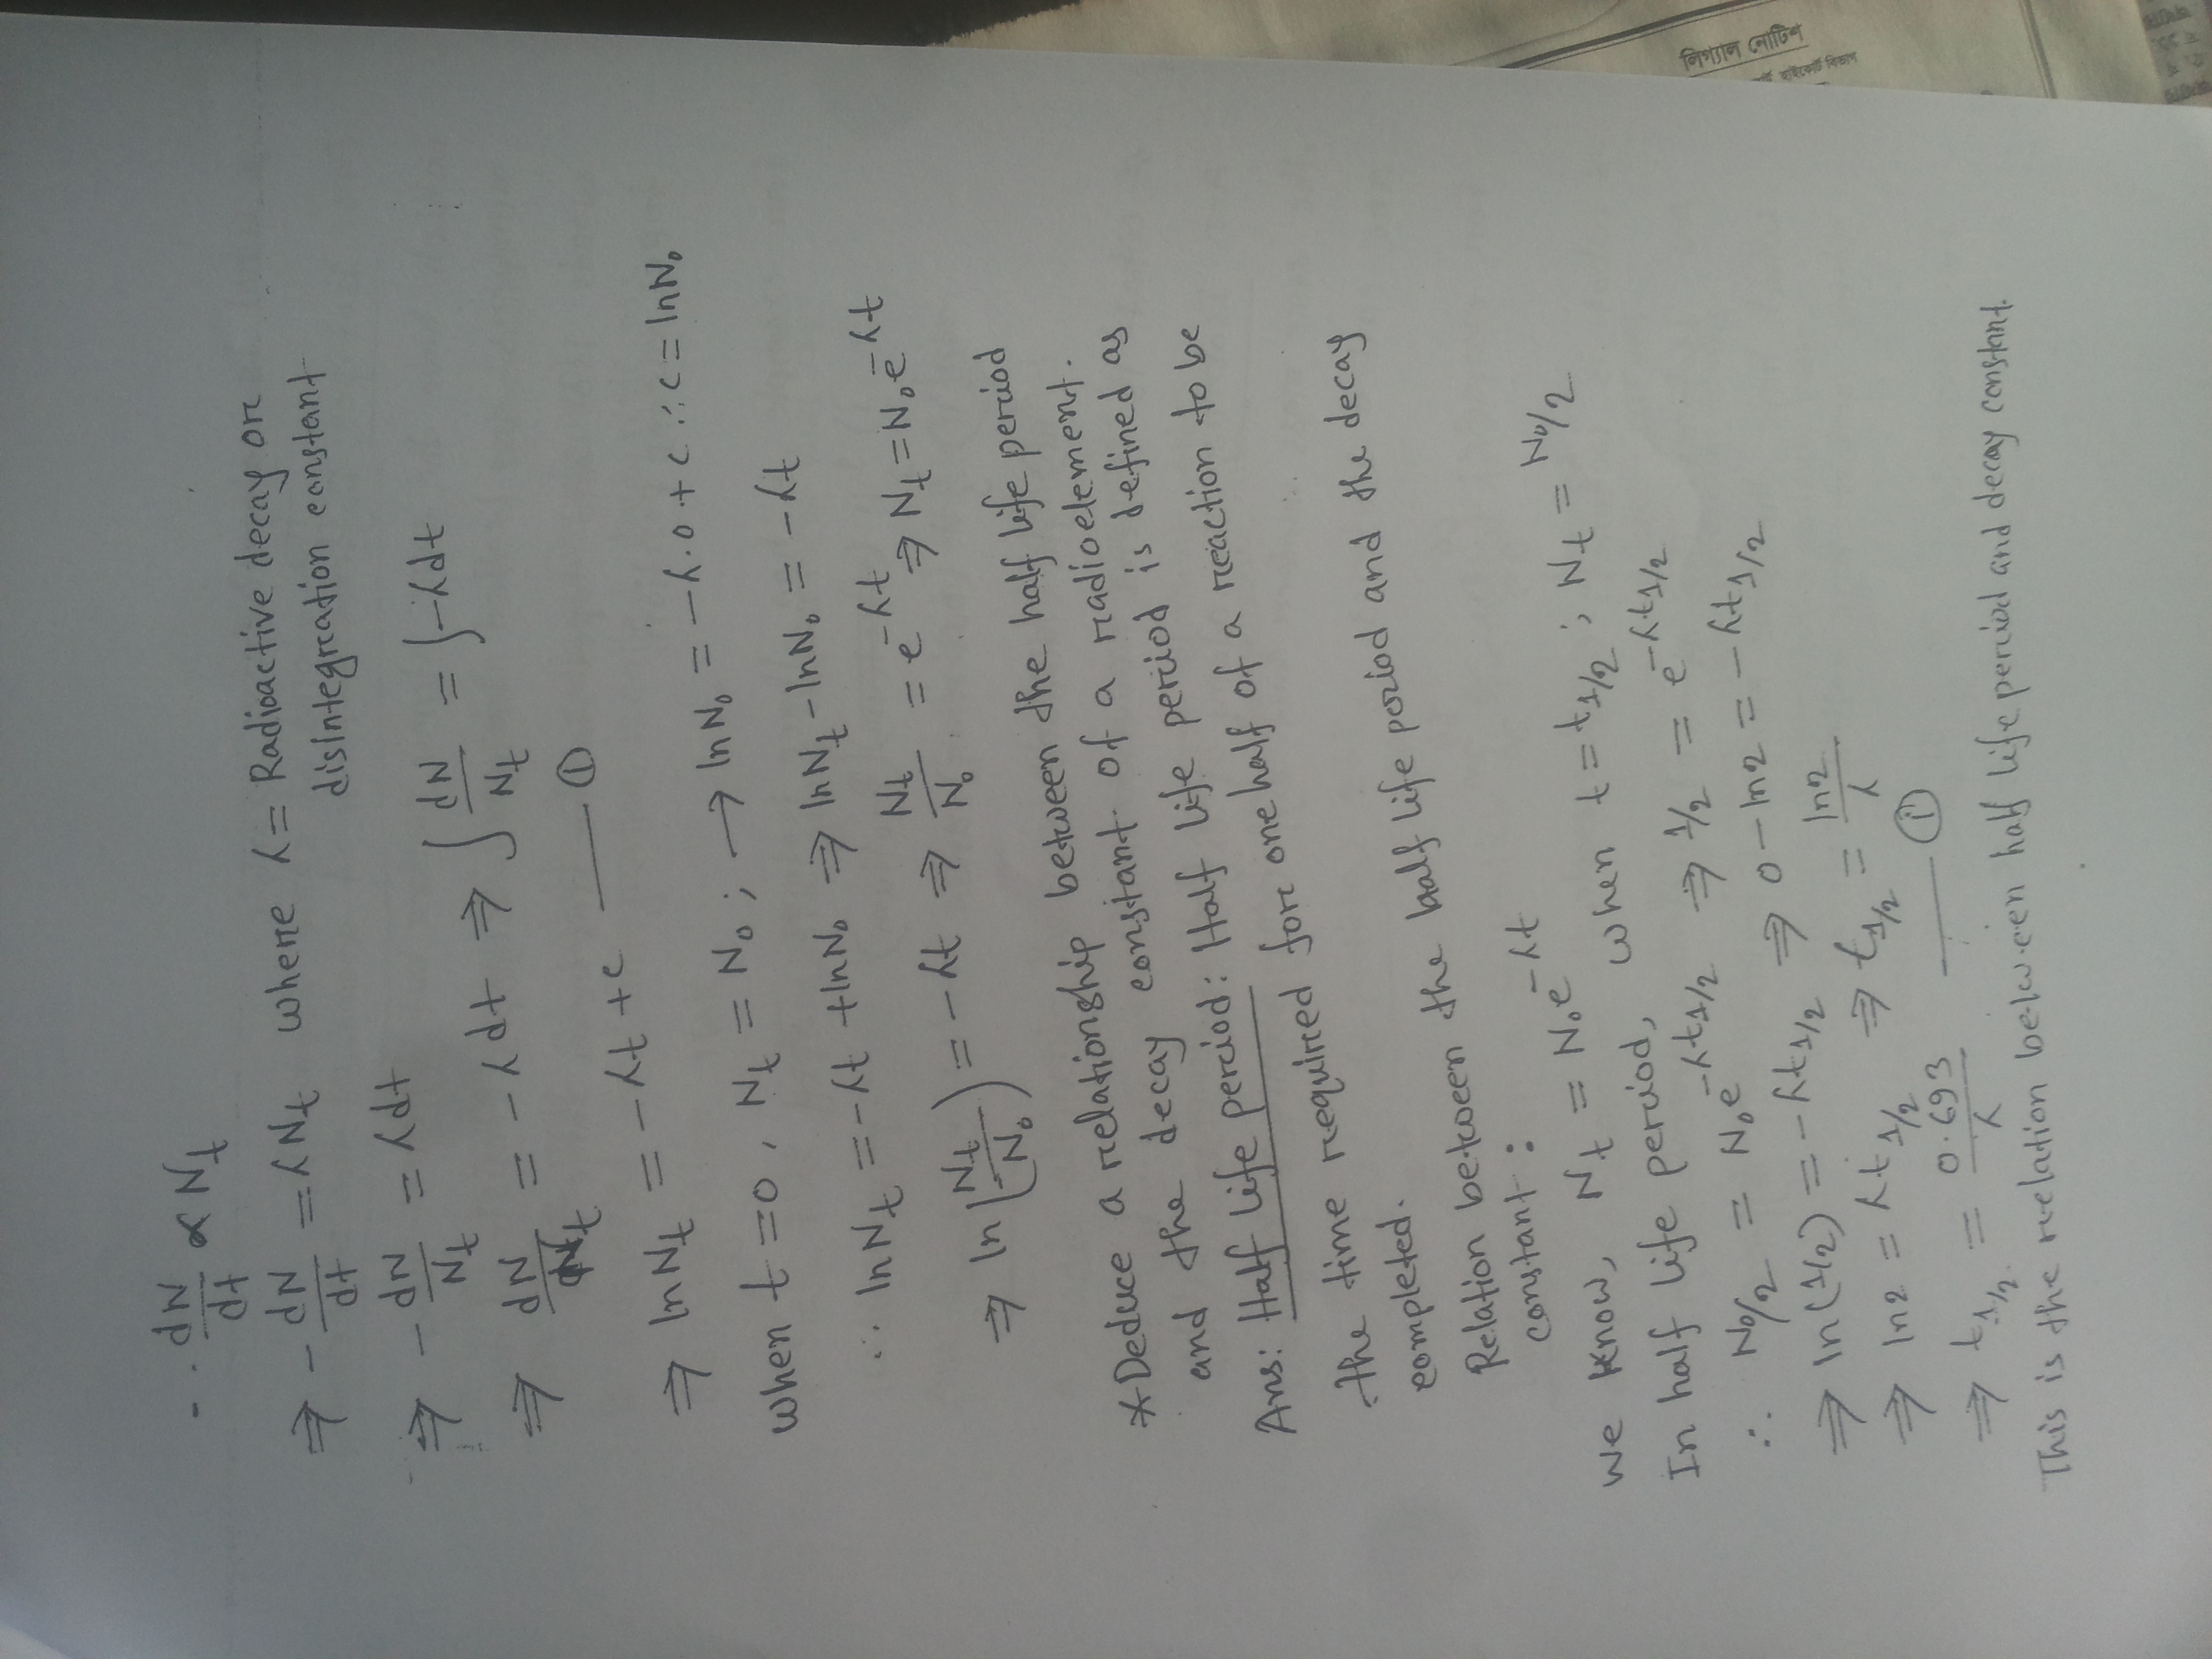 - · dN/dt ∝ N_t
⇒ - dN/dt = λN_t where λ = Radioactive decay or
disintegration constant
⇒ - dN/N_t = λdt
⇒ dN/N_t = - λdt ⇒ ∫ dN/N_t = ∫-λdt
⇒ lnN_t = -λt + c —— ①
When t = 0, N_t = N₀; → lnN₀ = -λ.0 + c ∴ c = lnN₀
∴ lnN_t = -λt + lnN₀ ⇒ lnN_t - lnN₀ = -λt
⇒ ln(N_t/N₀) = -λt ⇒ N_t/N₀ = e^-λt ⇒ N_t = N₀e^-λt
*Deduce a relationship between the half life period
and the decay constant of a radioelement.
Ans: Half life period: Half life period is defined as
the time required for one half of a reaction to be
completed.
Relation between the half life period and the decay
constant:
We know, N_t = N₀e^-λt
In half life period, when t = t_1/2; N_t = N₀/2
∴ N₀/2 = N₀e^-λt_1/2 ⇒ 1/2 = e^-λt_1/2
⇒ ln(1/2) = -λt_1/2 ⇒ 0 - ln2 = -λt_1/2
⇒ ln2 = λt_1/2 ⇒ t_1/2 = ln2/λ
⇒ t_1/2 = 0.693/λ —— ①
This is the relation between half life period and decay constant.
লিগ্যাল নোটিশ
হাইকোর্ট বিভাগ